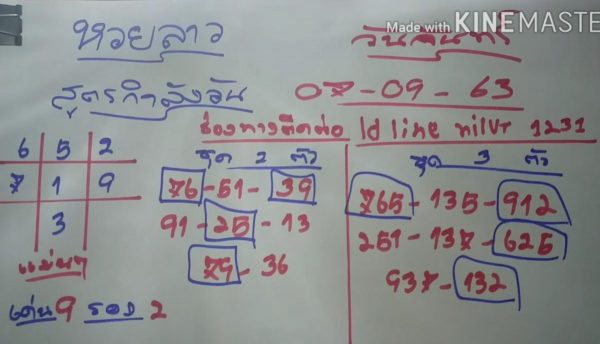 Made with KINEMASTER
หวยลาว
วันจันทร์
สูตรกำลังวัน
07-09-63
ช่องทางติดต่อ Id line nilvt 1231
6 5 2
7 1 9
3
แม่นๆ
เด่น 9 รอง 2
ชุด 2 ตัว
76-51-39
91-25-13
79-36
ชุด 3 ตัว
765-135-912
251-137-625
937-132